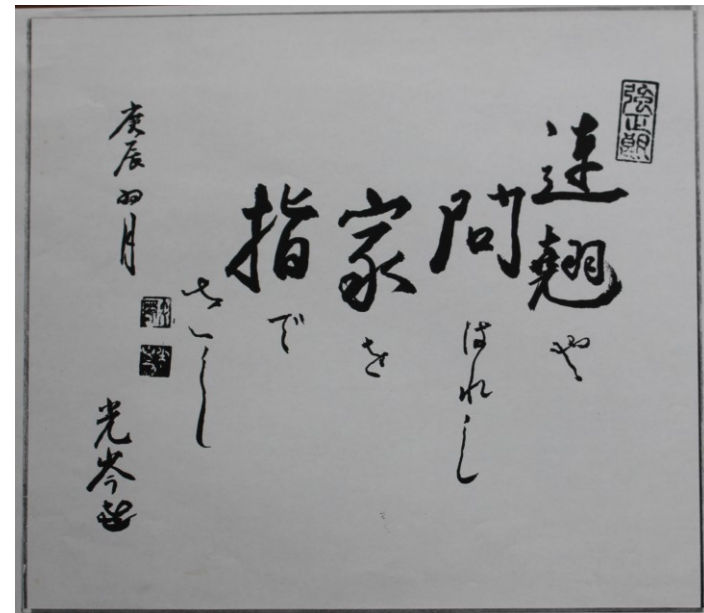 連翹や
問はれし
家を
指で
さし
庚辰 月
光岑